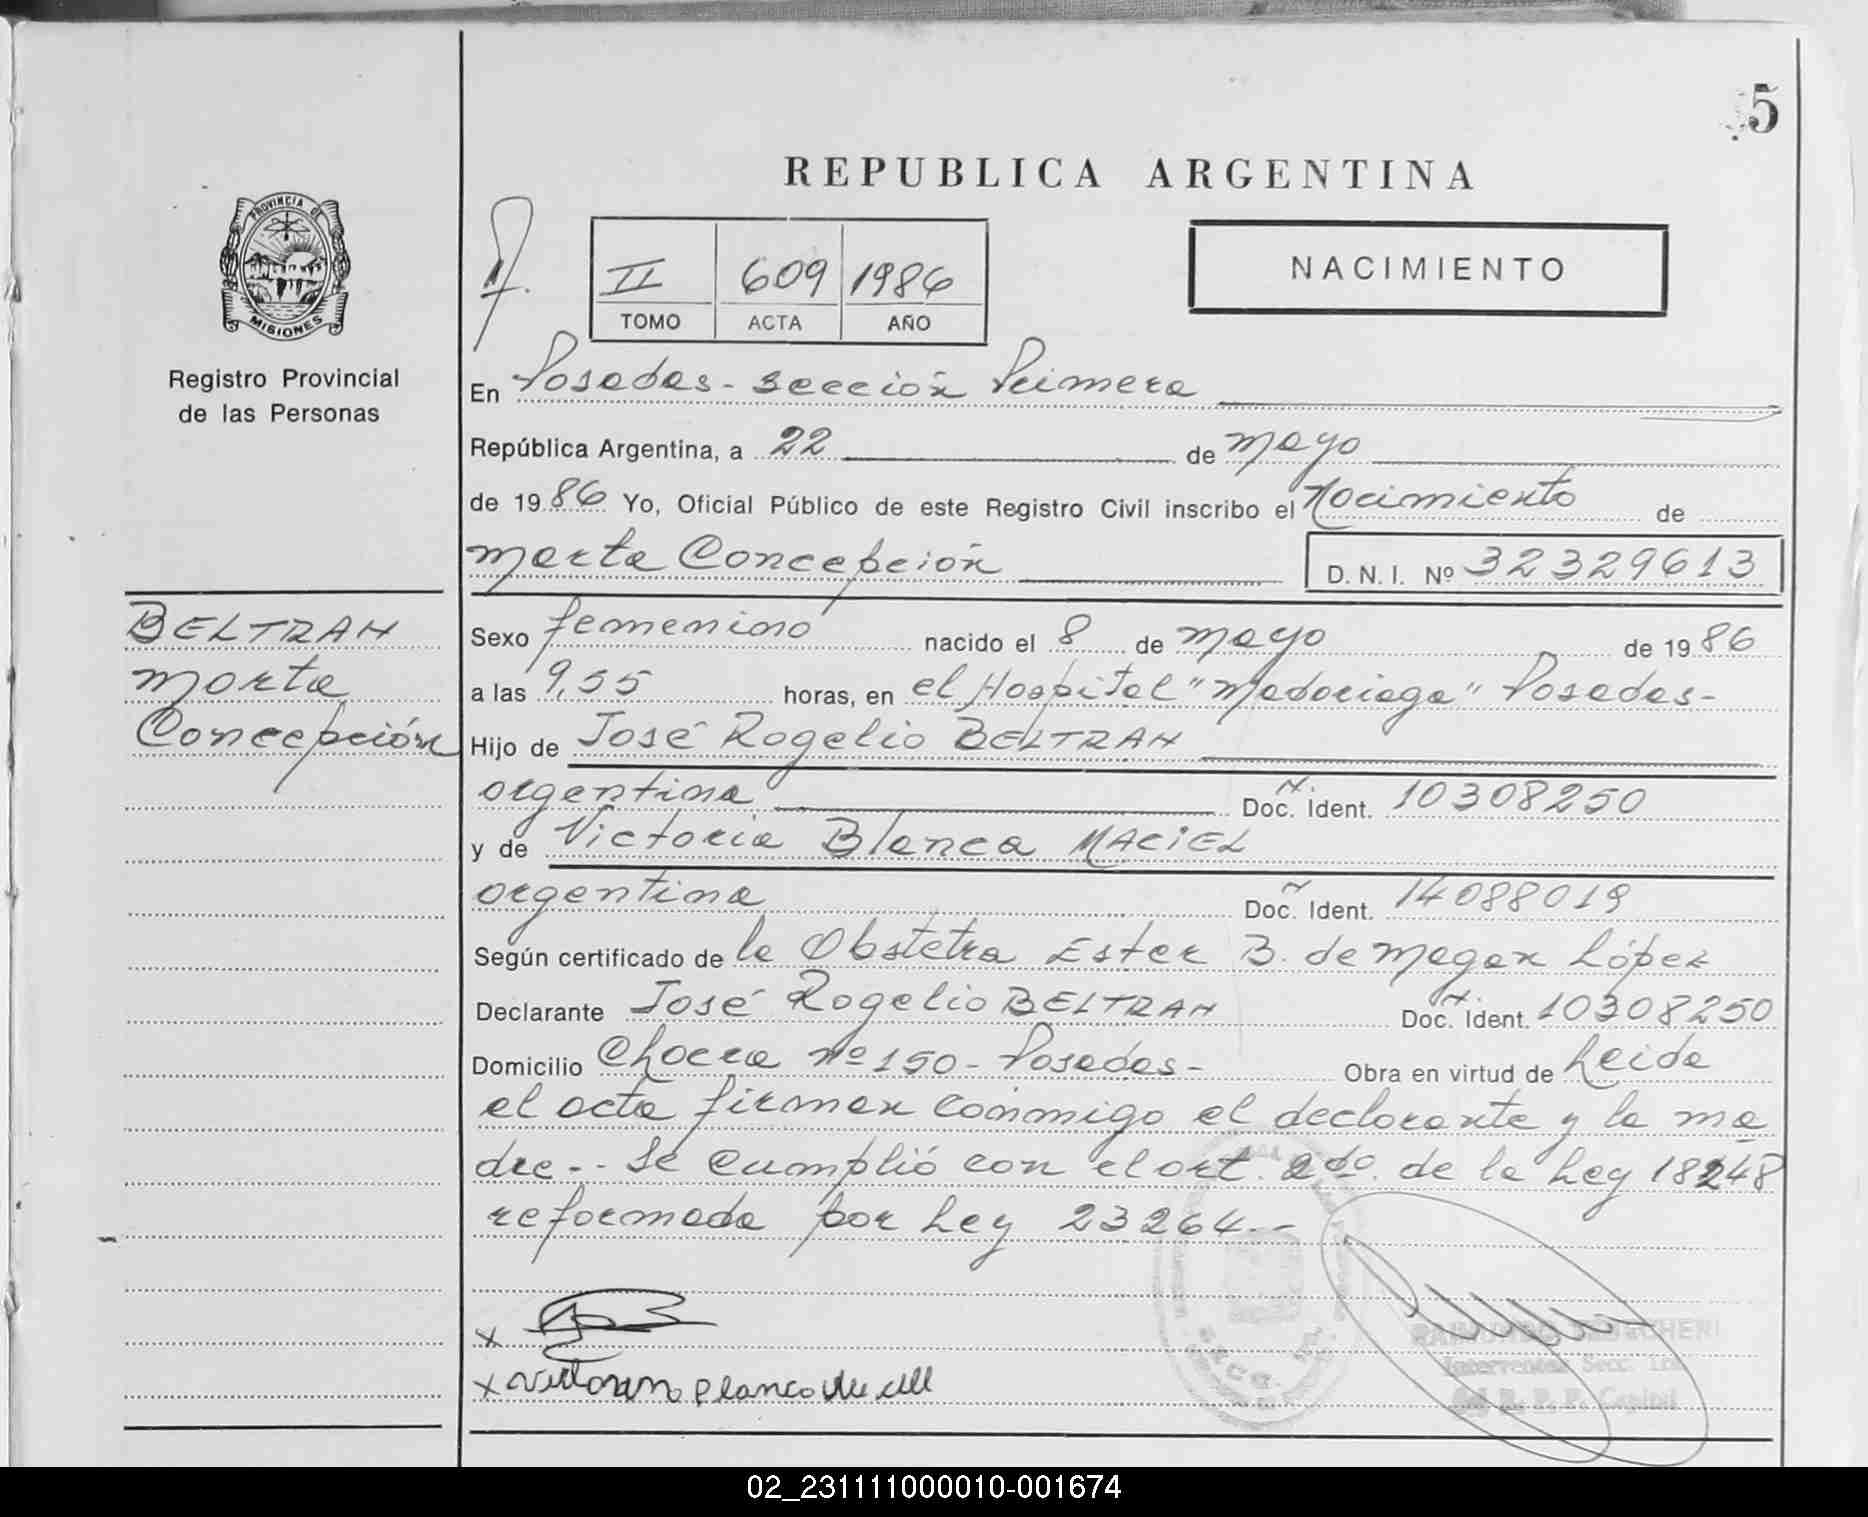 5
REPUBLICA ARGENTINA
PROVINCIA DE
MISIONES
II 609 1986
TOMO ACTA AÑO
NACIMIENTO
Registro Provincial
de las Personas
En Posadas - Sección Primera
República Argentina, a 22 de mayo
de 1986 Yo, Oficial Público de este Registro Civil inscribo el Nacimiento de
Marta Concepción D.N.I. Nº 32329613
BELTRAN
Marta
Concepción
Sexo femenino nacido el 8 de mayo de 1986
a las 9,55 horas, en el Hospital "Madariaga" Posadas-
Hijo de José Rogelio BELTRAN
argentina Doc. Ident. 10308250
y de Victoria Blanca MACIEL
argentina Doc. Ident. 14088019
Según certificado de la Obstetra Ester B. de Magan López
Declarante José Rogelio BELTRAN Doc. Ident. 10308250
Domicilio Chacra nº 150 - Posadas- Obra en virtud de Leida
el acta firman conmigo el declarante y la ma
dre-- Se cumplió con el art. 2do. de la Ley 18248
reformada por Ley 23264--
x
x
RAIMUNDO
Secc.
R. P. P. Capital
02_231111000010-001674